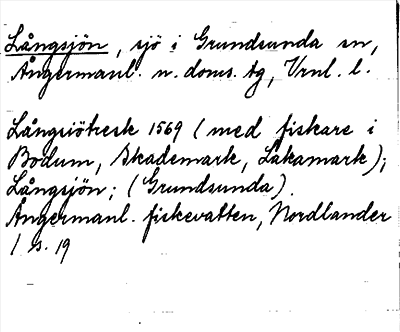 Långsjön, sjö i Grundsunda sn,
Ångermanl. n. doms. tg, Vrnl. l.
Långsiötresk 1569 (med fiskare i
Bodum, Skademark, Låkamark);
Långsjön; (Grundsunda).
Ångermanl. fiskevatten, Nordlander
1 s. 19